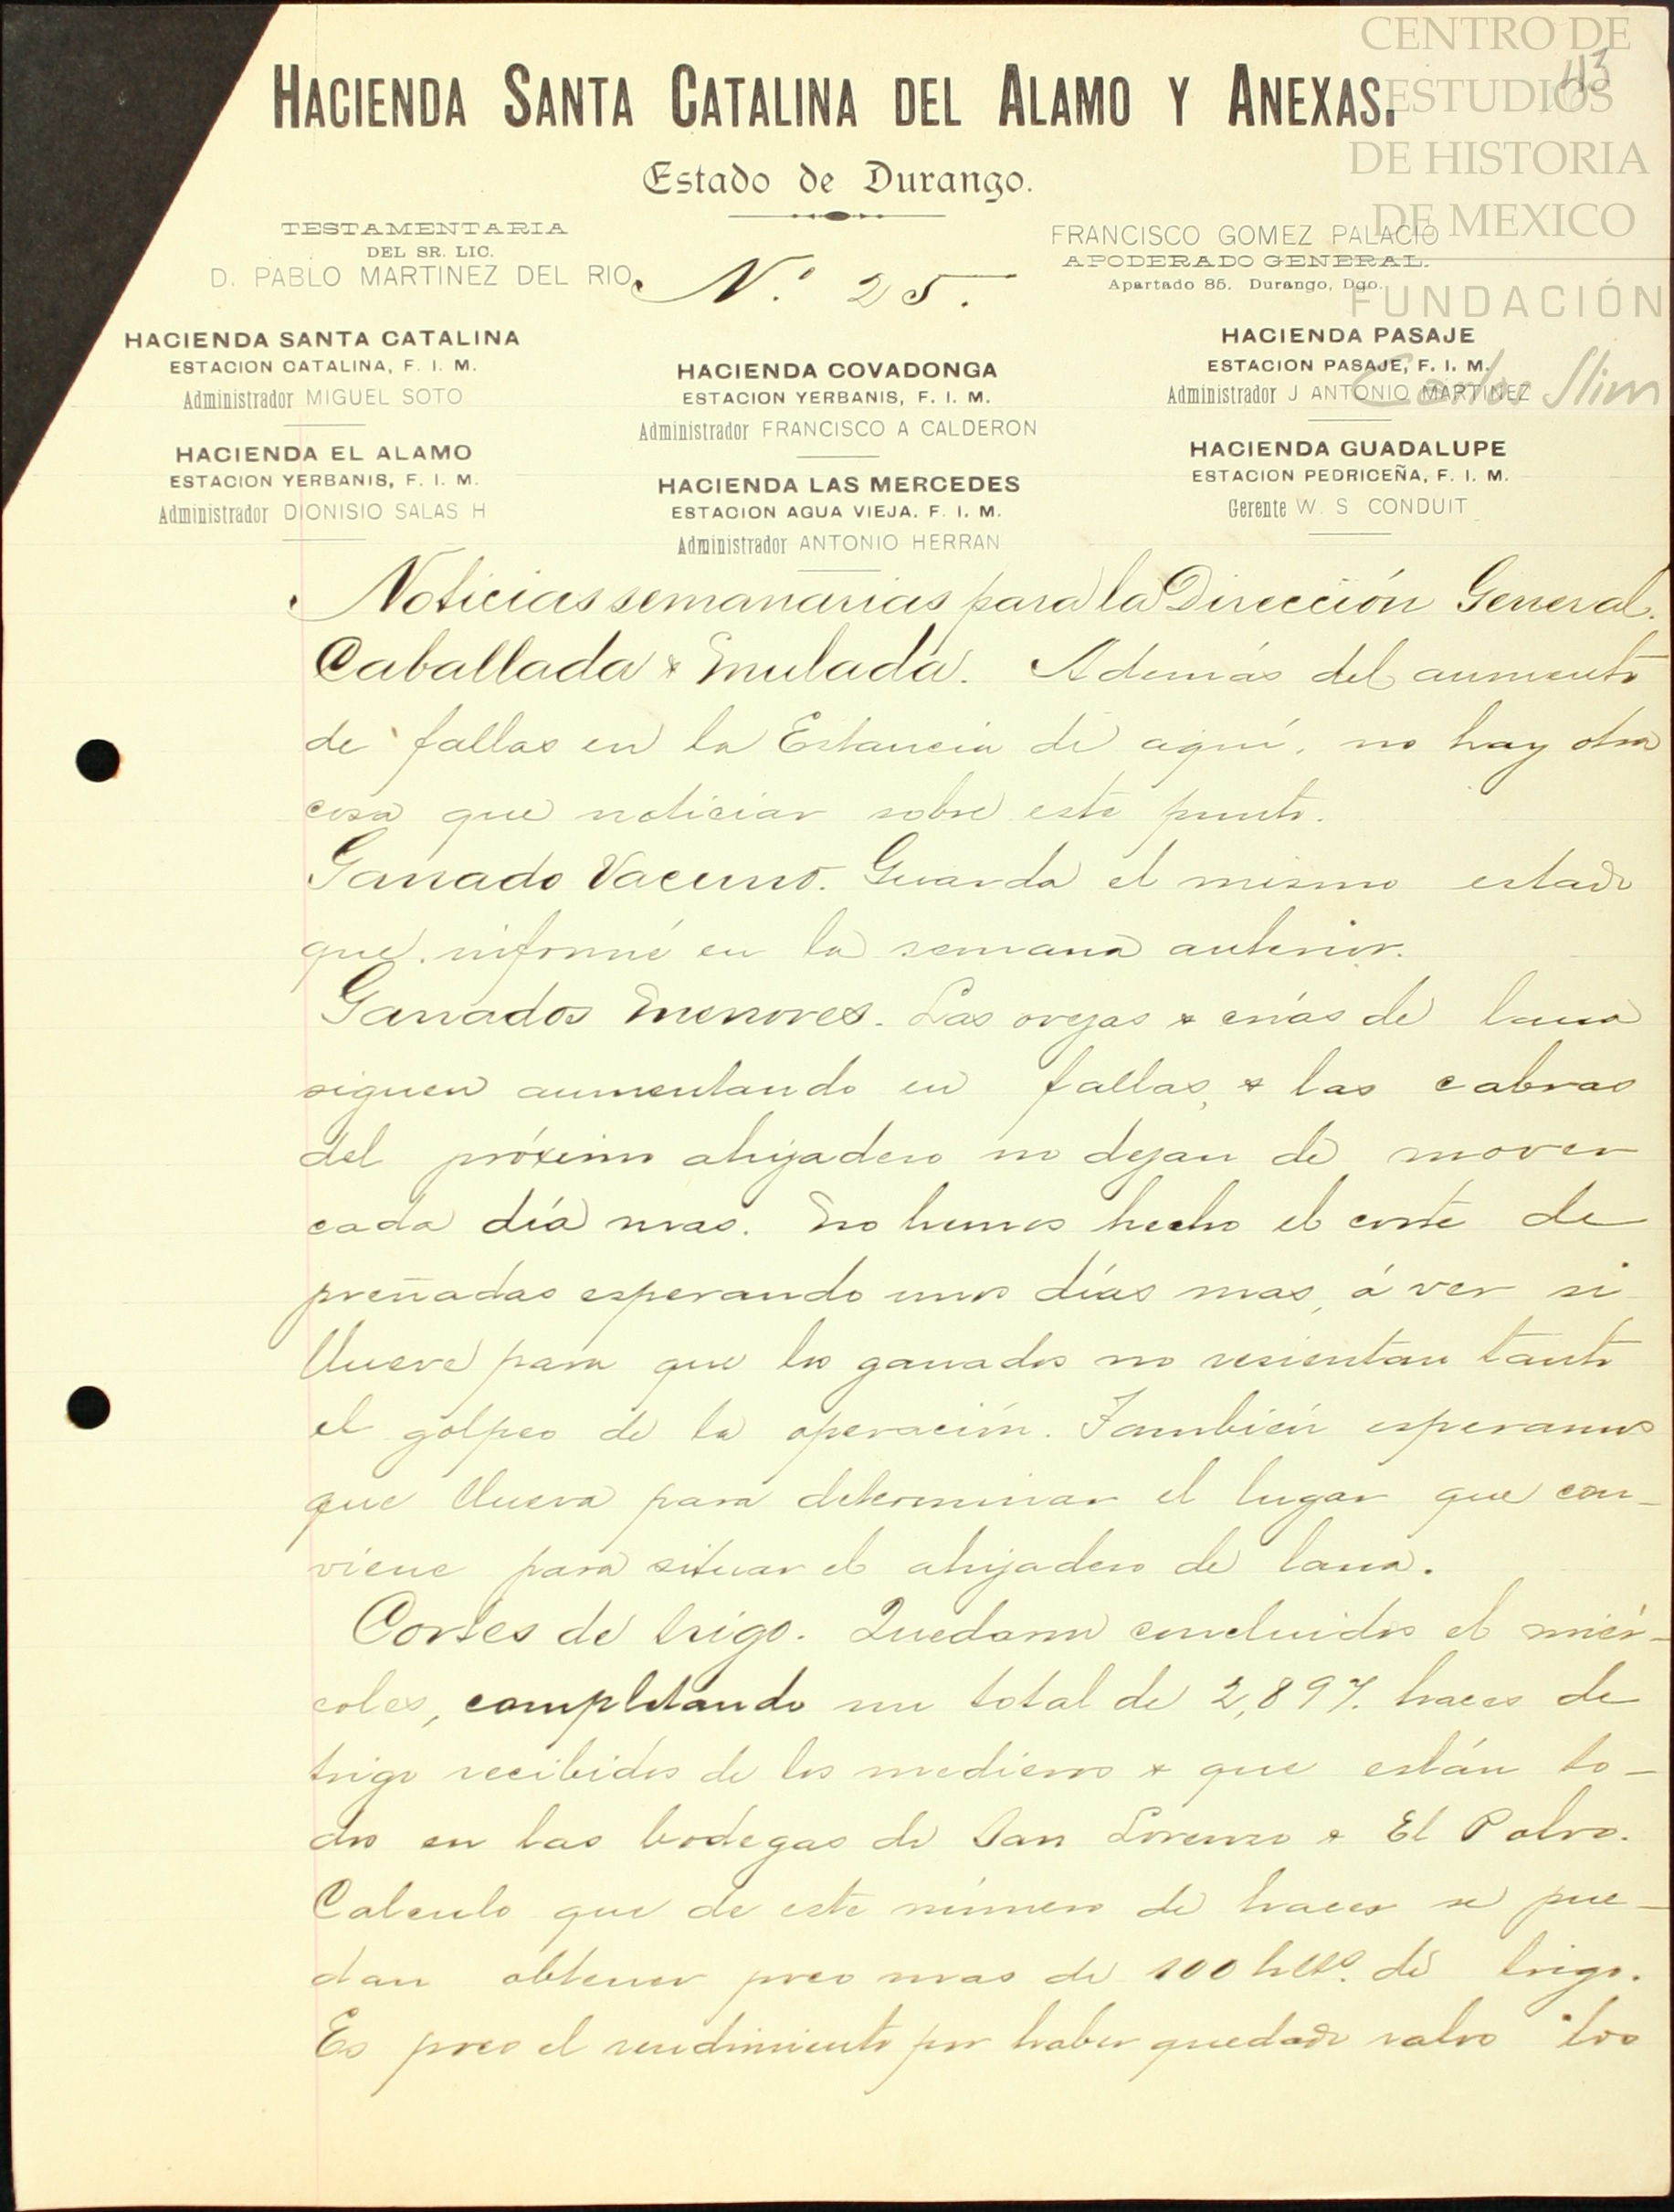 CENTRO DE
ESTUDIOS
DE HISTORIA
DE MEXICO
FUNDACIÓN
Carlos Slim
113
HACIENDA SANTA CATALINA DEL ALAMO Y ANEXAS.
Estado de Durango.
TESTAMENTARIA
DEL SR. LIC.
D. PABLO MARTINEZ DEL RIO.
N.º 25.
FRANCISCO GOMEZ PALACIO
APODERADO GENERAL.
Apartado 85. Durango, Dgo.
HACIENDA SANTA CATALINA
ESTACION CATALINA, F. I. M.
Administrador MIGUEL SOTO
HACIENDA EL ALAMO
ESTACION YERBANIS, F. I. M.
Administrador DIONISIO SALAS H
HACIENDA COVADONGA
ESTACION YERBANIS, F. I. M.
Administrador FRANCISCO A CALDERON
HACIENDA LAS MERCEDES
ESTACION AGUA VIEJA. F. I. M.
Administrador ANTONIO HERRAN
HACIENDA PASAJE
ESTACION PASAJE, F. I. M.
Administrador J ANTONIO MARTINEZ
HACIENDA GUADALUPE
ESTACION PEDRICEÑA, F. I. M.
Gerente W. S CONDUIT
Noticias semanarias para la Dirección General.
Caballada & Mulada. Además del aumento
de fallas en la Estancia de aquí, no hay otra
cosa que noticiar sobre este punto.
Ganado Vacuno. Guarda el mismo estado
que informé en la semana anterior.
Ganados Menores. Las ovejas & crías de lana
siguen aumentando en fallas, & las cabras
del próximo ahijadero no dejan de mover
cada día mas. No hemos hecho el corte de
preñadas esperando unos días mas, á ver si
llueve para que los ganados no resientan tanto
el golpeo de la operación. También esperamos
que llueva para determinar el lugar que con-
viene para situar el ahijadero de lana.
Cortes de trigo. Quedaron concluidos el miér-
coles, completando un total de 2,897. haces de
trigo recibidos de los medieros & que están to-
dos en las bodegas de San Lorenzo & El Polvo.
Calculo que de este número de haces se pue-
dan obtener poco mas de 100 hlts. de trigo.
Es poco el rendimiento por haber quedado ralos los